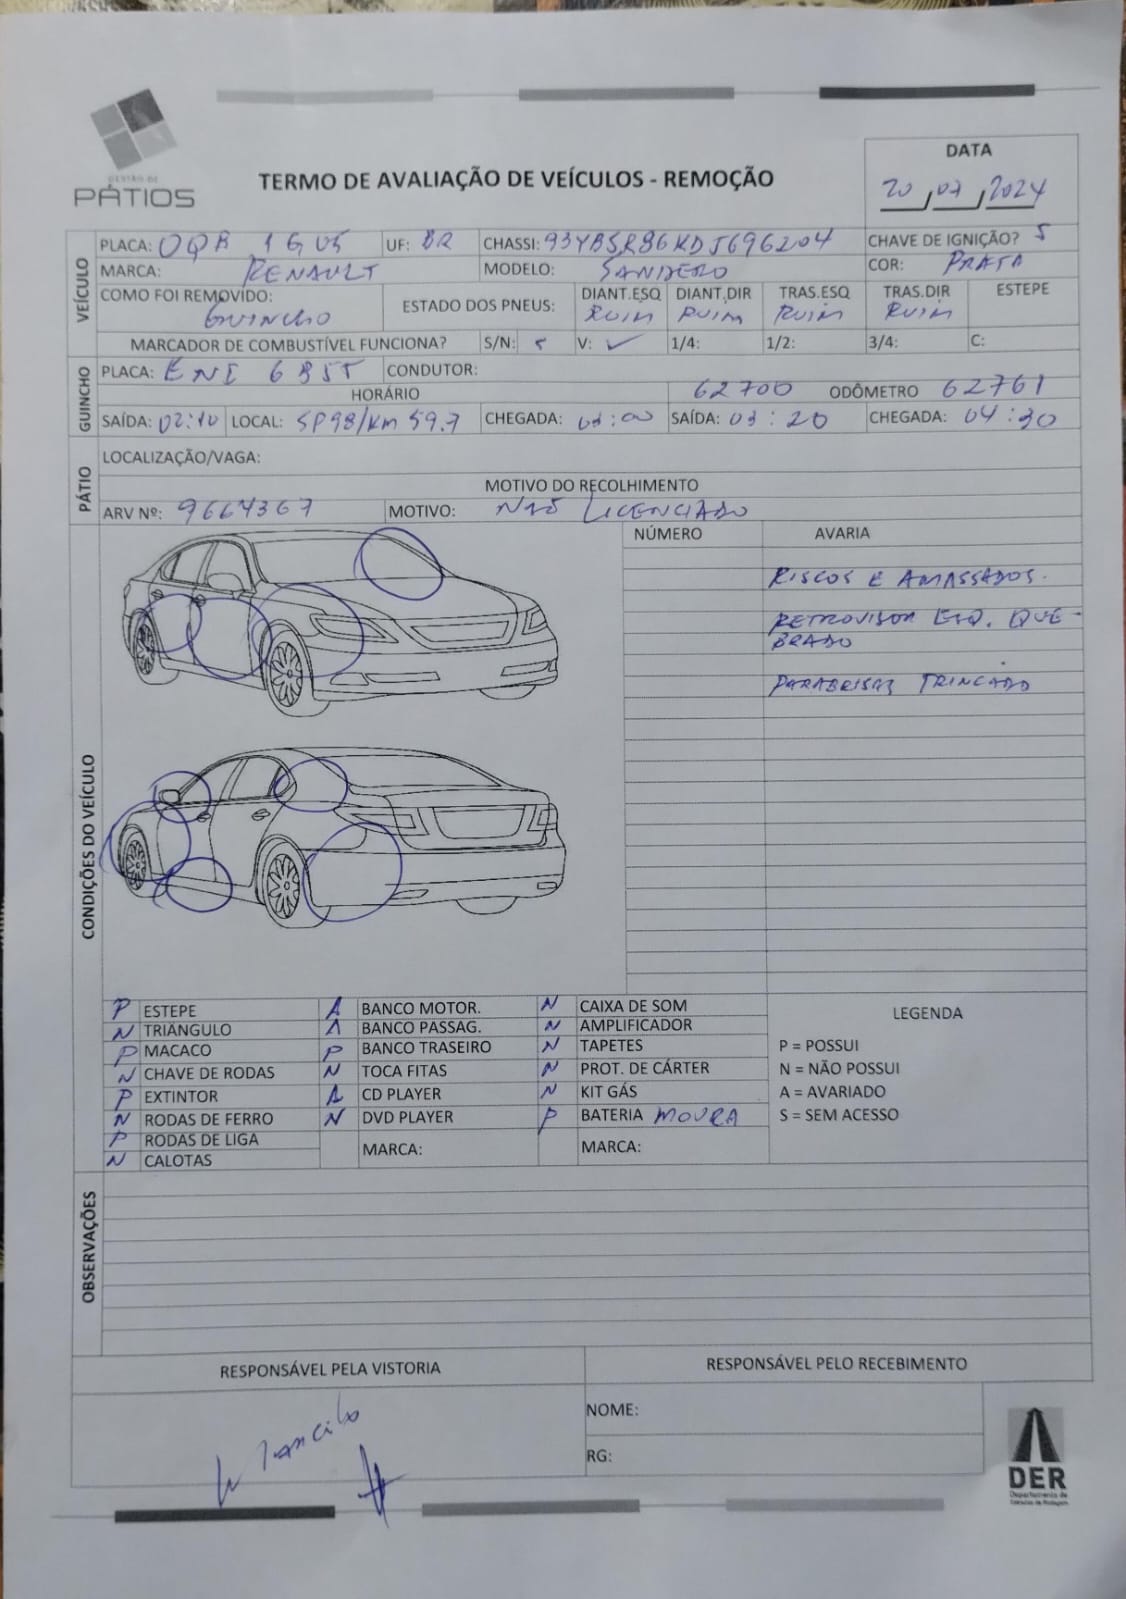 GESTÃO DE
PÁTIOS
TERMO DE AVALIAÇÃO DE VEÍCULOS - REMOÇÃO
DATA
20/07/2024
VEÍCULO
PLACA: OQA 1G05 UF: BR CHASSI: 93YBSR86KDJ696204 CHAVE DE IGNIÇÃO? S
MARCA: RENAULT MODELO: SANDERO COR: PRATA
COMO FOI REMOVIDO: GUINCHO ESTADO DOS PNEUS: DIANT.ESQ RUIM DIANT.DIR RUIM TRAS.ESQ RUIM TRAS.DIR RUIM ESTEPE
MARCADOR DE COMBUSTÍVEL FUNCIONA? S/N: S V: ✓ 1/4: 1/2: 3/4: C:
GUINCHO
PLACA: ENI 6855 CONDUTOR:
HORÁRIO 62700 ODÔMETRO 62761
SAÍDA: 02:10 LOCAL: SP98/KM 59.7 CHEGADA: 03:00 SAÍDA: 03:20 CHEGADA: 04:30
PÁTIO
LOCALIZAÇÃO/VAGA:
MOTIVO DO RECOLHIMENTO
ARV Nº: 9664367 MOTIVO: NÃO LICENCIADO
CONDIÇÕES DO VEÍCULO
NÚMERO AVARIA
RISCOS E AMASSADOS.
RETROVISOR ESQ. QUE-
BRADO
PARABRISAS TRINCADO
P ESTEPE A BANCO MOTOR. N CAIXA DE SOM LEGENDA
N TRIÂNGULO A BANCO PASSAG. N AMPLIFICADOR
P MACACO P BANCO TRASEIRO N TAPETES P = POSSUI
N CHAVE DE RODAS N TOCA FITAS N PROT. DE CÁRTER N = NÃO POSSUI
P EXTINTOR A CD PLAYER N KIT GÁS A = AVARIADO
N RODAS DE FERRO N DVD PLAYER P BATERIA MOURA S = SEM ACESSO
P RODAS DE LIGA MARCA: MARCA:
N CALOTAS
OBSERVAÇÕES
RESPONSÁVEL PELA VISTORIA RESPONSÁVEL PELO RECEBIMENTO
NOME:
RG:
DER
Departamento de
Estradas de Rodagem